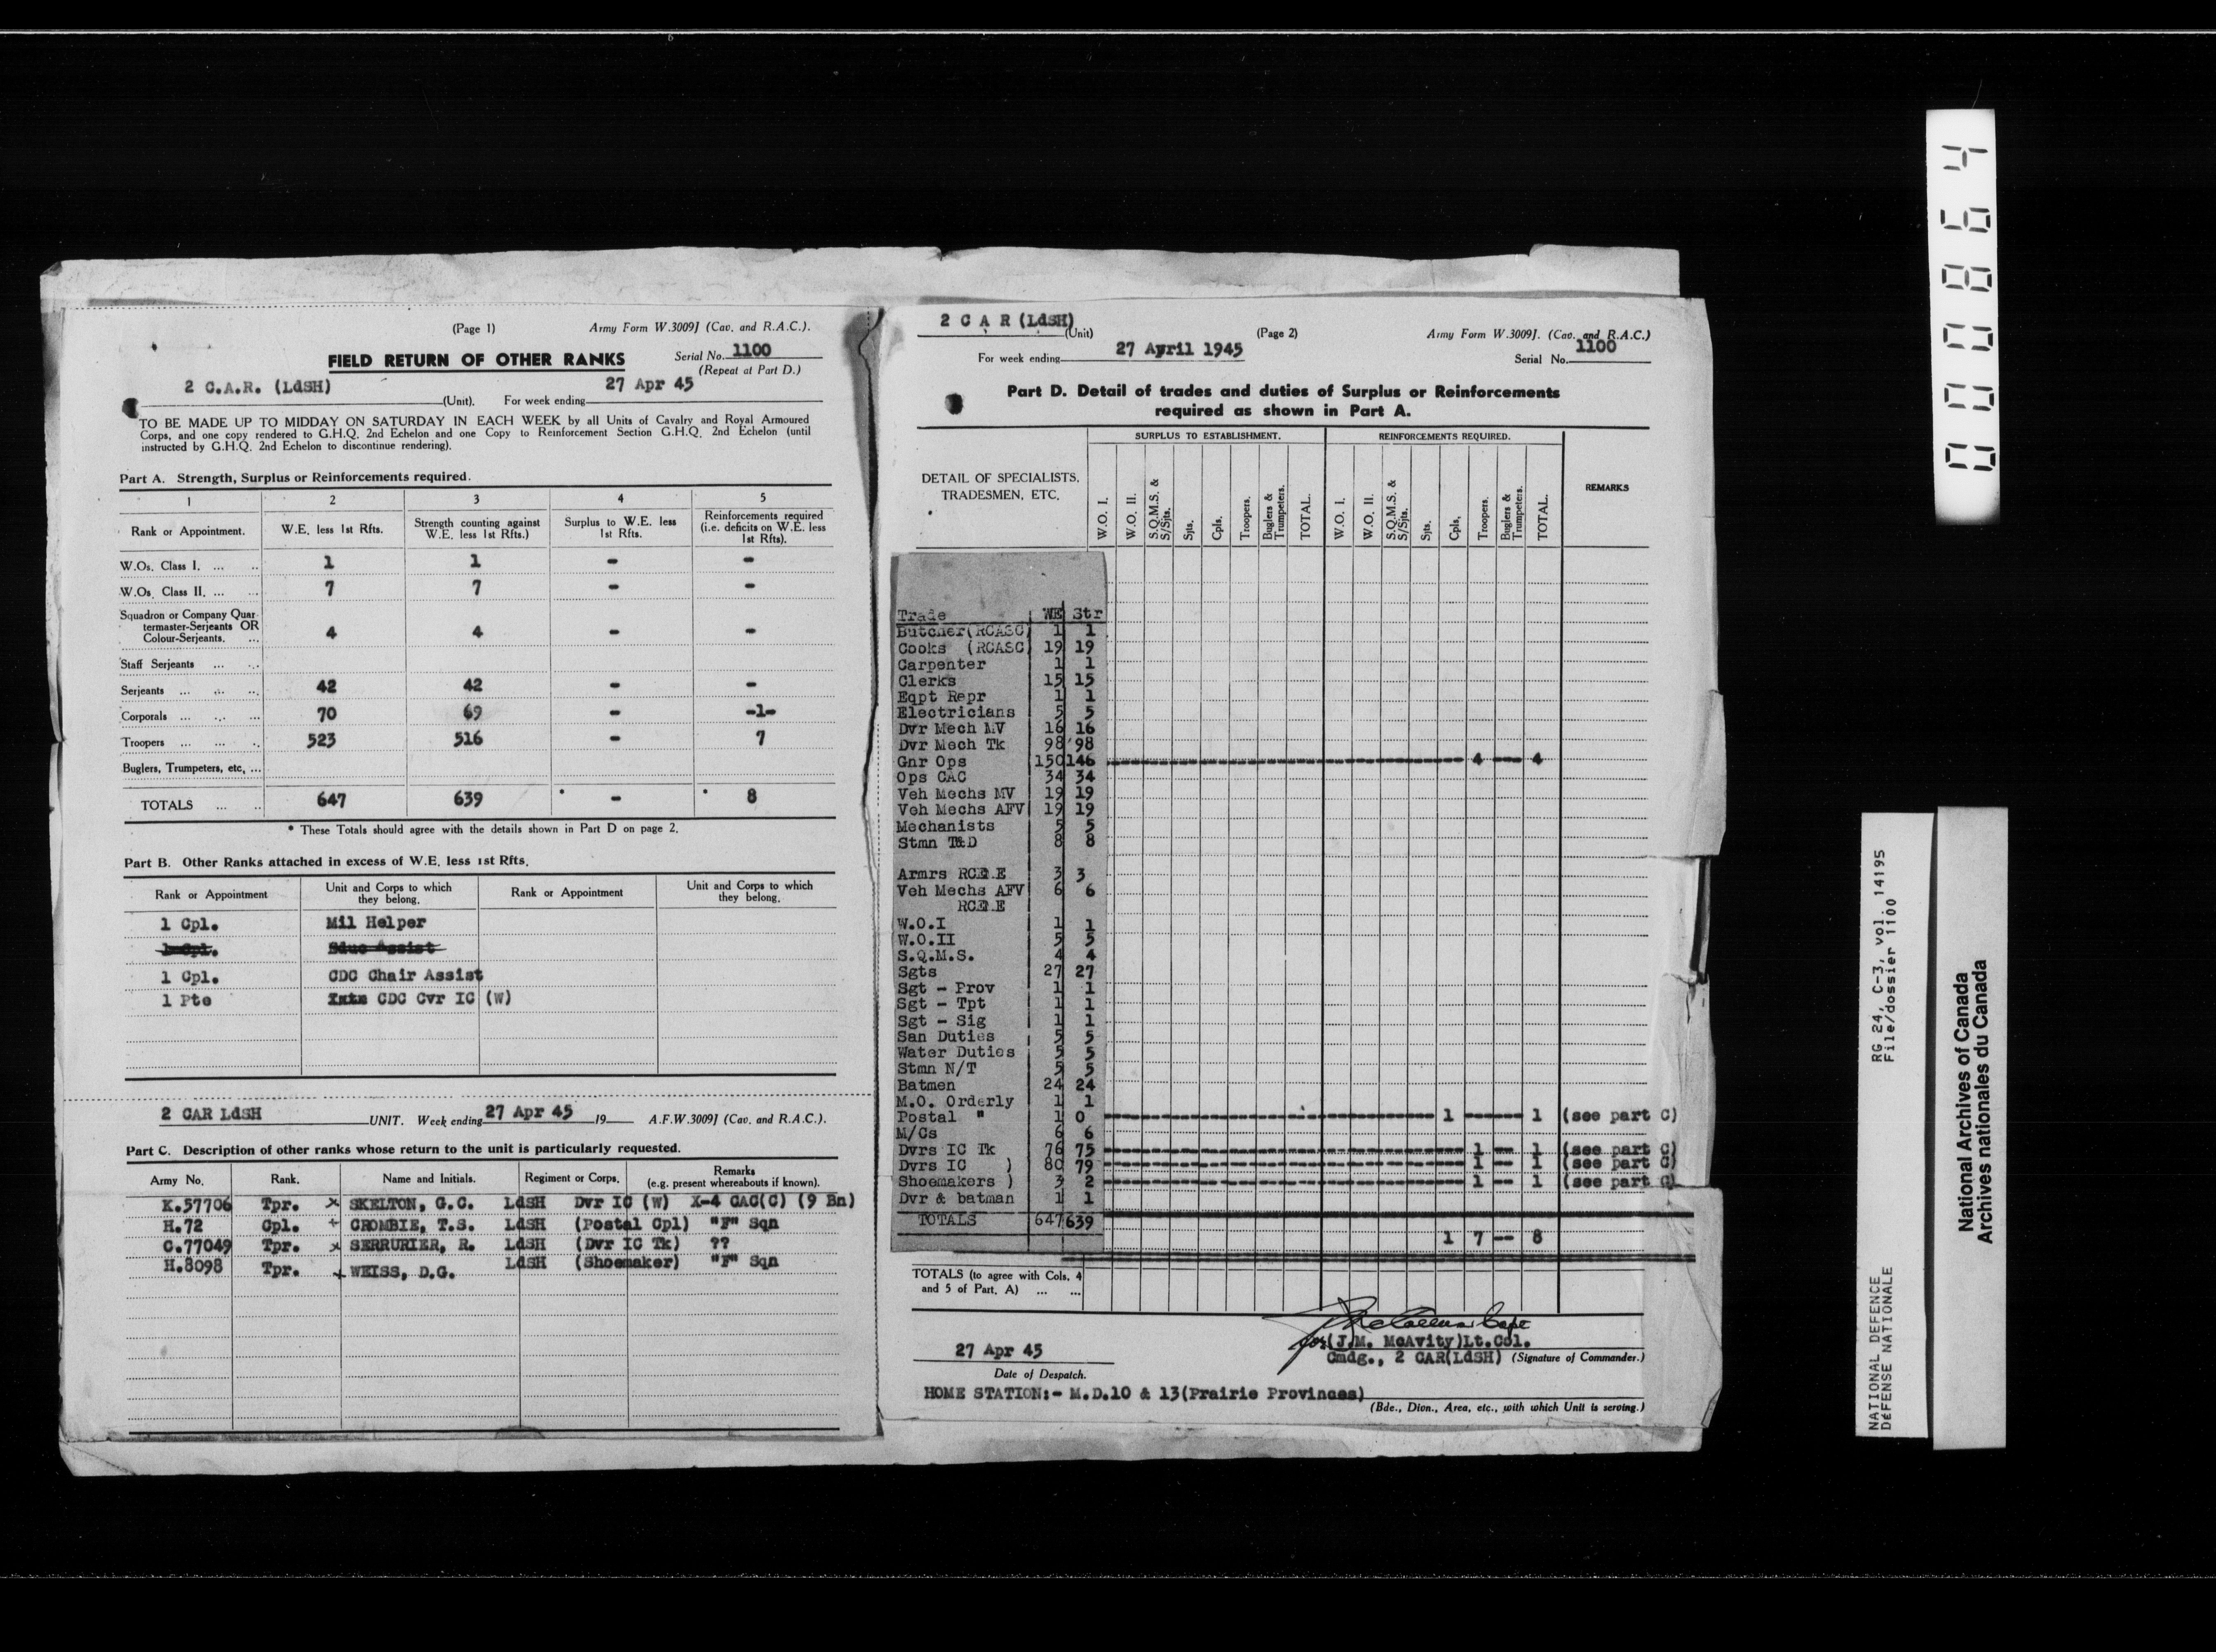 (Page 1) Army Form W.3009J (Cav. and R.A.C.).
FIELD RETURN OF OTHER RANKS Serial No. 1100
(Repeat at Part D.)
2 C.A.R. (LdSH) (Unit). For week ending 27 Apr 45
TO BE MADE UP TO MIDDAY ON SATURDAY IN EACH WEEK by all Units of Cavalry and Royal Armoured
Corps, and one copy rendered to G.H.Q. 2nd Echelon and one Copy to Reinforcement Section G.H.Q. 2nd Echelon (until
instructed by G.H.Q. 2nd Echelon to discontinue rendering).
Part A. Strength, Surplus or Reinforcements required.
1 2 3 4 5
Rank or Appointment. W.E. less 1st Rfts. Strength counting against W.E. less 1st Rfts.) Surplus to W.E. less 1st Rfts. Reinforcements required (i.e. deficits on W.E. less 1st Rfts).
W.Os. Class I. ... .. 1 1 - -
W.Os. Class II. ... ... 7 7 - -
Squadron or Company Quar-
termaster-Serjeants OR
Colour-Serjeants. ... 4 4 - -
Staff Serjeants ... ...
Serjeants ... ... ... 42 42 - -
Corporals ... ... ... 70 69 - -1-
Troopers ... ... .. 523 516 - 7
Buglers, Trumpeters, etc, ...
TOTALS ... .. 647 639 * - * 8
* These Totals should agree with the details shown in Part D on page 2.
Part B. Other Ranks attached in excess of W.E. less 1st Rfts.
Rank or Appointment Unit and Corps to which they belong. Rank or Appointment Unit and Corps to which they belong.
1 Cpl. Mil Helper
1 Cpl. Educ Assist
1 Cpl. CDC Chair Assist
1 Pte CDC Cvr IC (W)
2 CAR LdSH UNIT. Week ending 27 Apr 45 19 A.F.W.3009J (Cav. and R.A.C.).
Part C. Description of other ranks whose return to the unit is particularly requested.
Army No. Rank. Name and Initials. Regiment or Corps. Remarks (e.g. present whereabouts if known).
K.57706 Tpr. x SKELTON, G.C. LdSH Dvr IC (W) X-4 CAC(C) (9 Bn)
H.72 Cpl. + CROMBIE, T.S. LdSH (Postal Cpl) "F" Sqn
C.77049 Tpr. x SERRURIER, R. LdSH (Dvr IC Tk) ??
H.8098 Tpr. + WEISS, D.G. LdSH (Shoemaker) "F" Sqn
2 C A R (LdSH) (Unit) (Page 2) Army Form W.3009J. (Cav. and R.A.C.)
For week ending 27 April 1945 Serial No. 1100
Part D. Detail of trades and duties of Surplus or Reinforcements
required as shown in Part A.
SURPLUS TO ESTABLISHMENT. REINFORCEMENTS REQUIRED.
DETAIL OF SPECIALISTS, TRADESMEN, ETC. W.O. I. W.O. II. S.Q.M.S. & S/Sjts. Sjts. Cpls. Troopers. Buglers & Trumpeters. TOTAL. W.O. I. W.O. II. S.Q.M.S. & S/Sjts. Sjts. Cpls. Troopers. Buglers & Trumpeters. TOTAL. REMARKS
Trade WE Str
Butcher(RCASC) 1 1
Cooks (RCASC) 19 19
Carpenter 1 1
Clerks 15 15
Eqpt Repr 1 1
Electricians 5 5
Dvr Mech MV 16 16
Dvr Mech Tk 98 98
Gnr Ops 150 146 4 -- 4
Ops CAC 34 34
Veh Mechs MV 19 19
Veh Mechs AFV 19 19
Mechanists 5 5
Stmn T&D 8 8
Armrs RCEME 3 3
Veh Mechs AFV 6 6
RCEME
W.O.I 1 1
W.O.II 5 5
S.Q.M.S. 4 4
Sgts 27 27
Sgt - Prov 1 1
Sgt - Tpt 1 1
Sgt - Sig 1 1
San Duties 5 5
Water Duties 5 5
Stmn N/T 5 5
Batmen 24 24
M.O. Orderly 1 1
Postal " 1 0 1 ---- 1 (see part C)
M/Cs 6 6
Dvrs IC Tk 76 75 1 -- 1 (see part C)
Dvrs IC ) 80 79 1 -- 1 (see part C)
Shoemakers ) 3 2 1 -- 1 (see part C)
Dvr & batman 1 1
TOTALS 647 639
1 7 -- 8
TOTALS (to agree with Cols. 4
and 5 of Part. A) ... ...
for (J.M. McAvity)Lt.Col.
27 Apr 45 Cmdg., 2 CAR(LdSH) (Signature of Commander.)
Date of Despatch.
HOME STATION:- M.D.10 & 13(Prairie Provinces)
(Bde., Divn., Area, etc., with which Unit is serving.)
000864
RG 24, C-3, vol. 14195
File/dossier 1100
NATIONAL DEFENCE
DÉFENSE NATIONALE
National Archives of Canada
Archives nationales du Canada